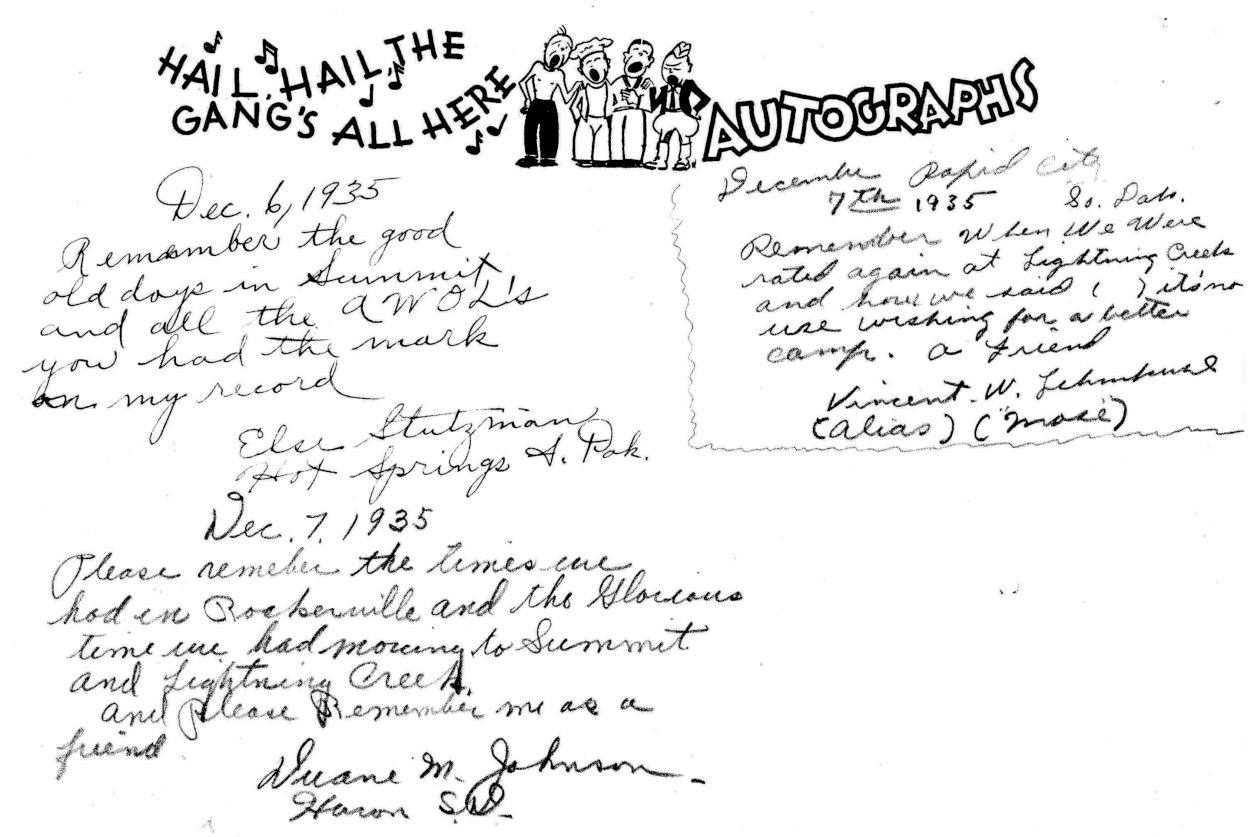 HAIL, HAIL, THE
GANG'S ALL HERE
AUTOGRAPHS
Dec. 6, 1935
Remember the good
old days in Summit,
and all the AWOL's
you had the mark
on my record
Else Stutzman
Hot Springs S. Dak.
Dec. 7, 1935
Please remeber the times we
had in Rockerville and the Glorious
time we had moving to Summit
and Lightning Creek.
and Please Remember me as a
friend
Duane M. Johnson
Huron S.D.
December Rapid City
7th 1935 So. Dak.
Remember When We Were
rated again at Lightning Creek
and how we said ( ) it's no
use wishing for a better
camp. a friend
Vincent W.
(alias) ("Mose")